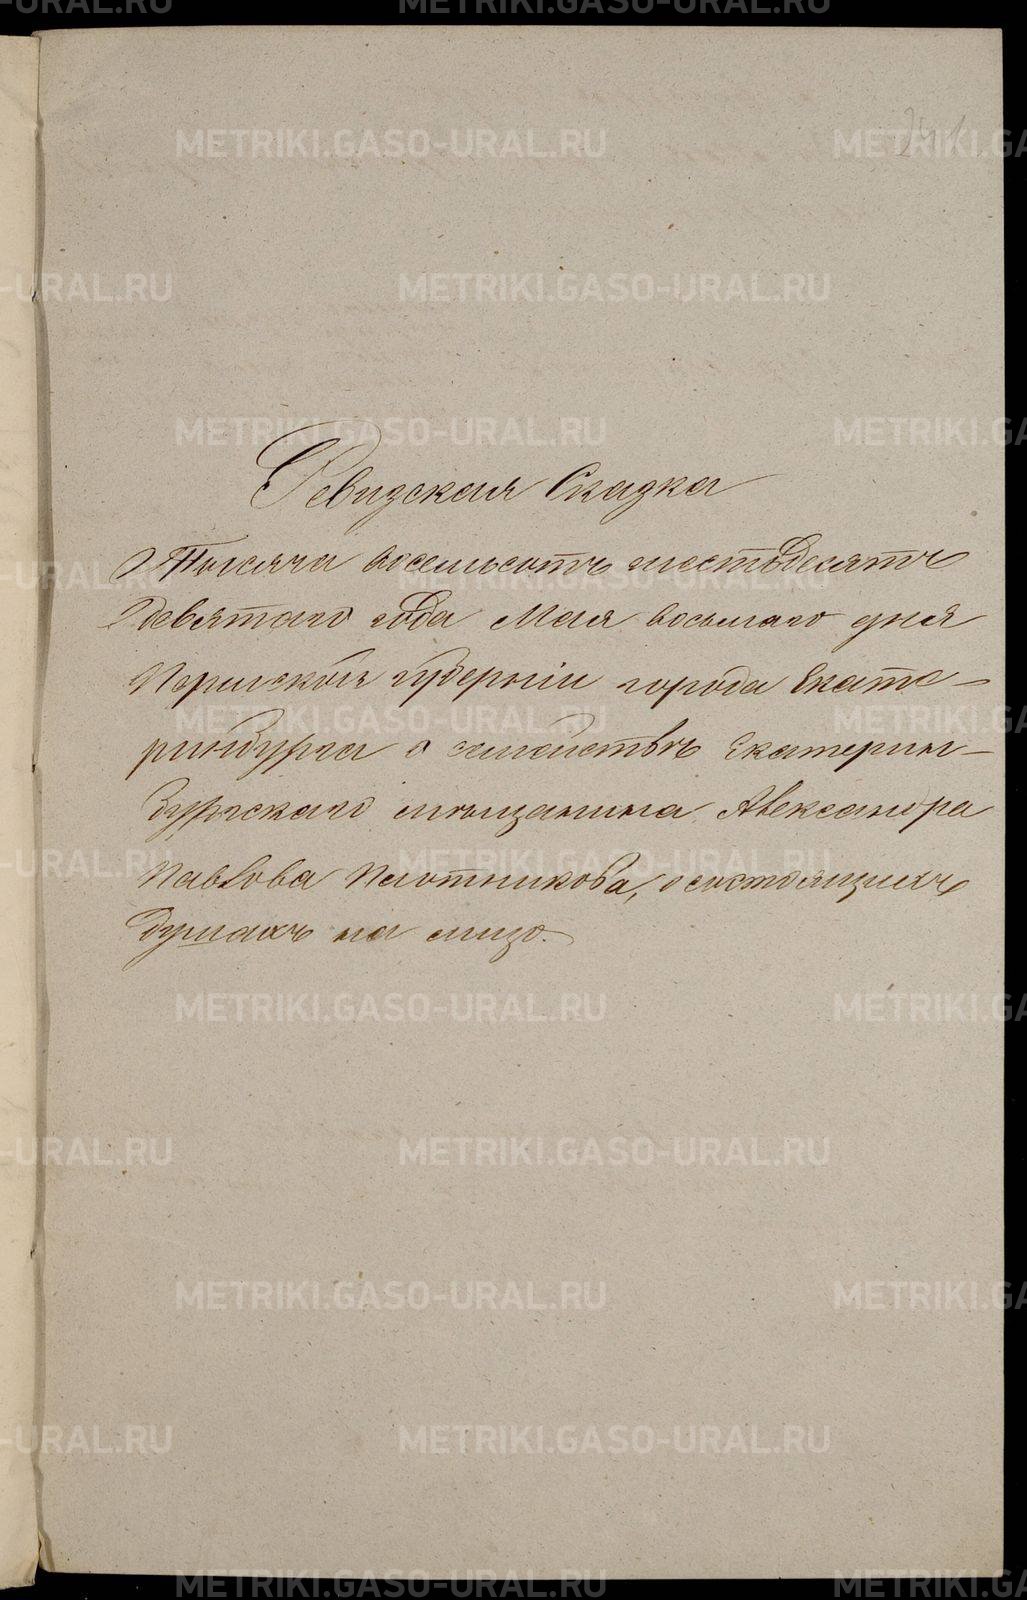 241
Ревизская Сказка
Тысяча восемьсотъ шестьдесятъ
девятаго года Мая восьмаго дня
Пермской губерніи города Екате-
ринбурга о семействѣ Екатерин-
бургскаго мѣщанина Александра
Павлова Плотникова, о состоящихъ
душахъ на лицо.
METRIKI.GASO-URAL.RU